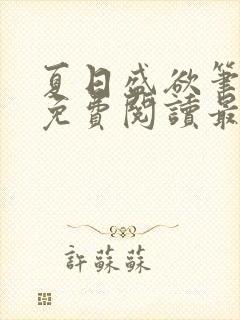 夏日盛欲筆
免費閱讀最
許蘇蘇